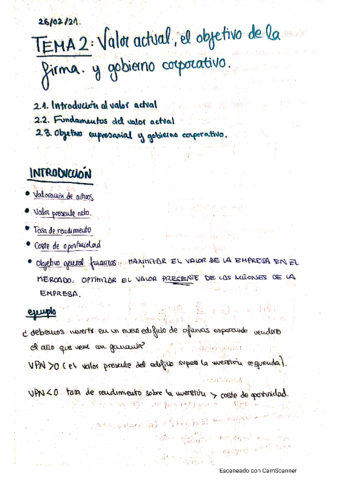 26/02/21.
TEMA 2: Valor actual, el objetivo de la
firma. y gobierno corporativo.
2.1. Introducción al valor actual
2.2. Fundamentos del valor actual
2.3. Objetivo empresarial y gobierno corporativo.
INTRODUCCIÓN
• Valoración de activos
• Valor presente neto.
• Tasa de rendimiento
• Coste de oportunidad
• Objetivo general financiero: MAXIMIZAR EL VALOR DE LA EMPRESA EN EL
MERCADO. OPTIMIZAR EL VALOR PRESENTE DE LAS ACCIONES DE LA
EMPRESA.
ejemplo
¿debemos invertir en un nuevo edificio de oficinas esperando venderlo
el año que viene con ganancia?
VPN >0 (el valor presente del edificio supera la inversión requerida).
VPN<0. tasa de rendimiento sobre la inversión > coste de oportunidad.
Escaneado con CamScanner